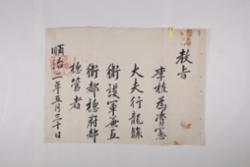 教旨
李枝馨資憲
大夫行龍驤
衛護軍兼五
衛都摠府都
摠管者
順治二年五月三十日